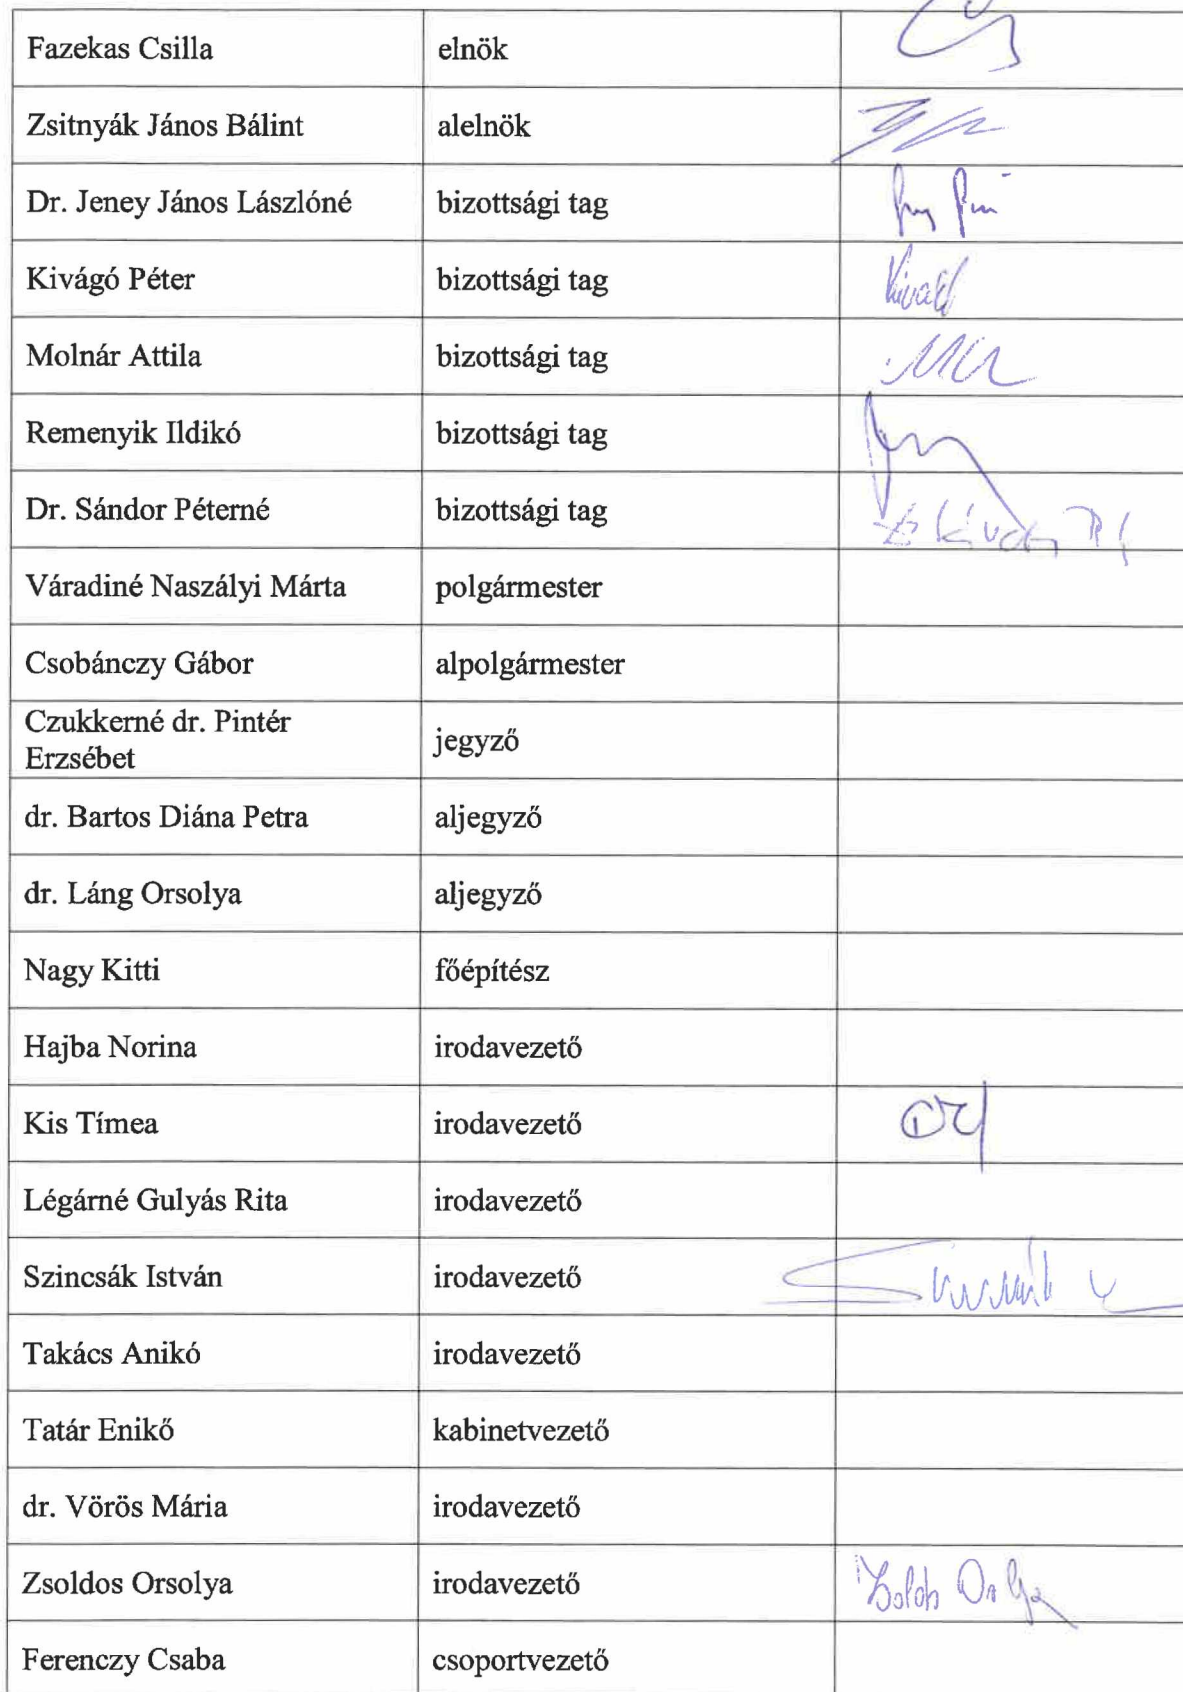 Fazekas Csilla elnök
Zsitnyák János Bálint alelnök
Dr. Jeney János Lászlóné bizottsági tag
Kivágó Péter bizottsági tag
Molnár Attila bizottsági tag
Remenyik Ildikó bizottsági tag
Dr. Sándor Péterné bizottsági tag
Váradiné Naszályi Márta polgármester
Csobánczy Gábor alpolgármester
Czukkerné dr. Pintér
Erzsébet jegyző
dr. Bartos Diána Petra aljegyző
dr. Láng Orsolya aljegyző
Nagy Kitti főépítész
Hajba Norina irodavezető
Kis Tímea irodavezető
Légárné Gulyás Rita irodavezető
Szincsák István irodavezető
Takács Anikó irodavezető
Tatár Enikő kabinetvezető
dr. Vörös Mária irodavezető
Zsoldos Orsolya irodavezető
Ferenczy Csaba csoportvezető